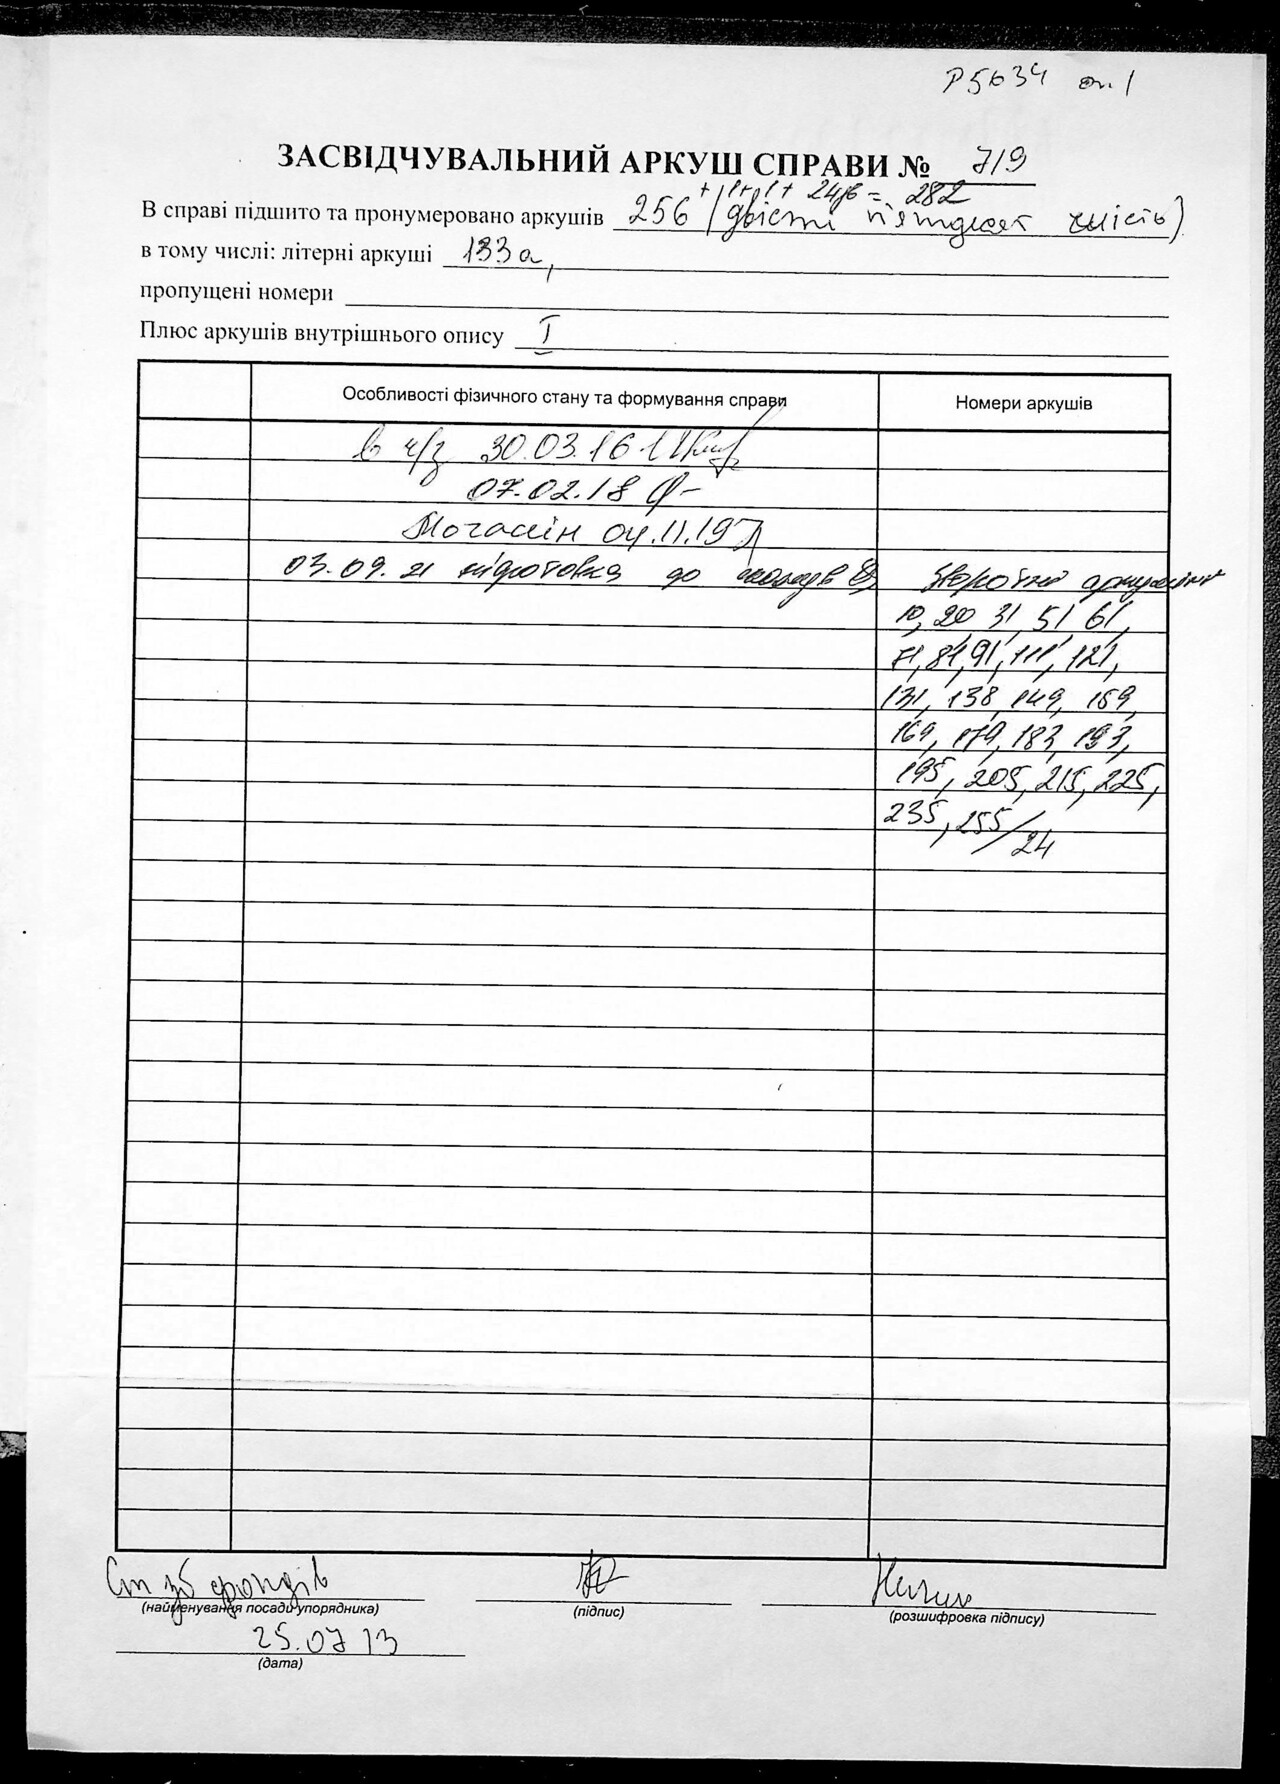 Р5634 оп. 1
ЗАСВІДЧУВАЛЬНИЙ АРКУШ СПРАВИ № 719
+1+1+ 24зв = 282
В справі підшито та пронумеровано аркушів 256 (двісті п'ятдесят шість)
в тому числі: літерні аркуші 133а,
пропущені номери
Плюс аркушів внутрішнього опису 1
Особливості фізичного стану та формування справи Номери аркушів
в ч/з 30.03.16
07.02.18
04.11.19
03.09.21 підготовка до Зворотні
10, 20, 31, 51, 61,
71, 81, 91, 111, 121,
131, 138, 149, 159,
169, 179, 183, 193,
195, 205, 215, 225,
235, 255/24
Ст зб фондів
(найменування посади упорядника) (підпис) (розшифровка підпису)
25.07.13
(дата)